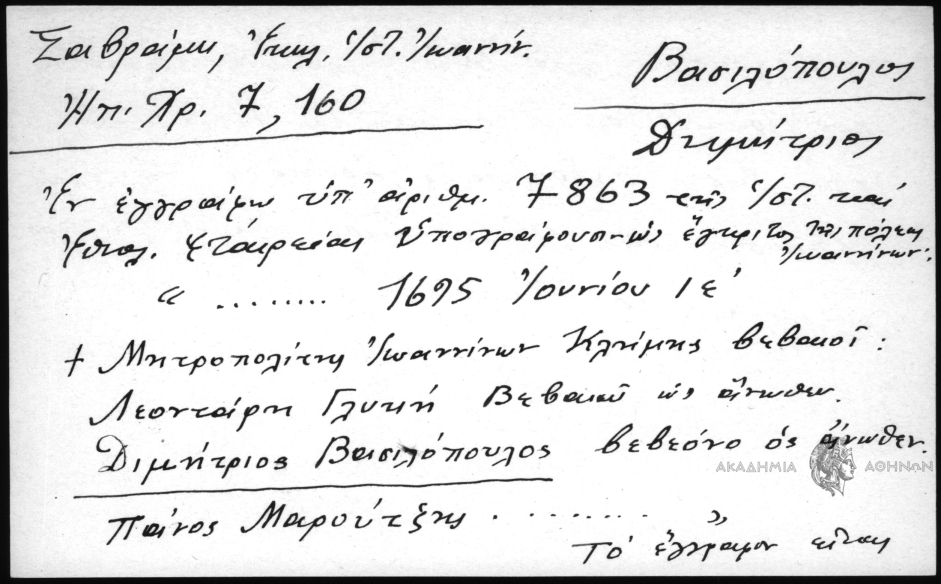 Σαβράμη, Ἐκκλ. Ἱστ. Ἰωαννίν.
Ἠπ. Χρ. 7, 160
Βασιλόπουλος
Δημήτριος
Ἐν ἐγγράφῳ ὑπ' ἀριθμ. 7863 τῆς Ἱστ. καί
Ἐθνολ. Ἑταιρείας ὑπογράφουσιν ὡς ἔγκριτοι τῆς πόλεως
Ἰωαννίνων:
" ........ 1695 Ἰουνίου ιε'
† Μητροπολίτης Ἰωαννίνων Κλήμης βεβαιοῖ:
Λεοντάρης Γλυκύς Βεβαιῶ ὡς ἄνωθεν.
Διμήτριος Βασιλόπουλος βεβεόνο ὁς ἄνωθεν.
Πάνος Μαρούτζης . ........ "
Τό ἔγγραφον εἶναι
ΑΚΑΔΗΜΙΑ ΑΘΗΝΩΝ